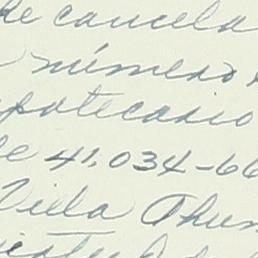 de cancela
número
potecario
de 41,034-66
Villa